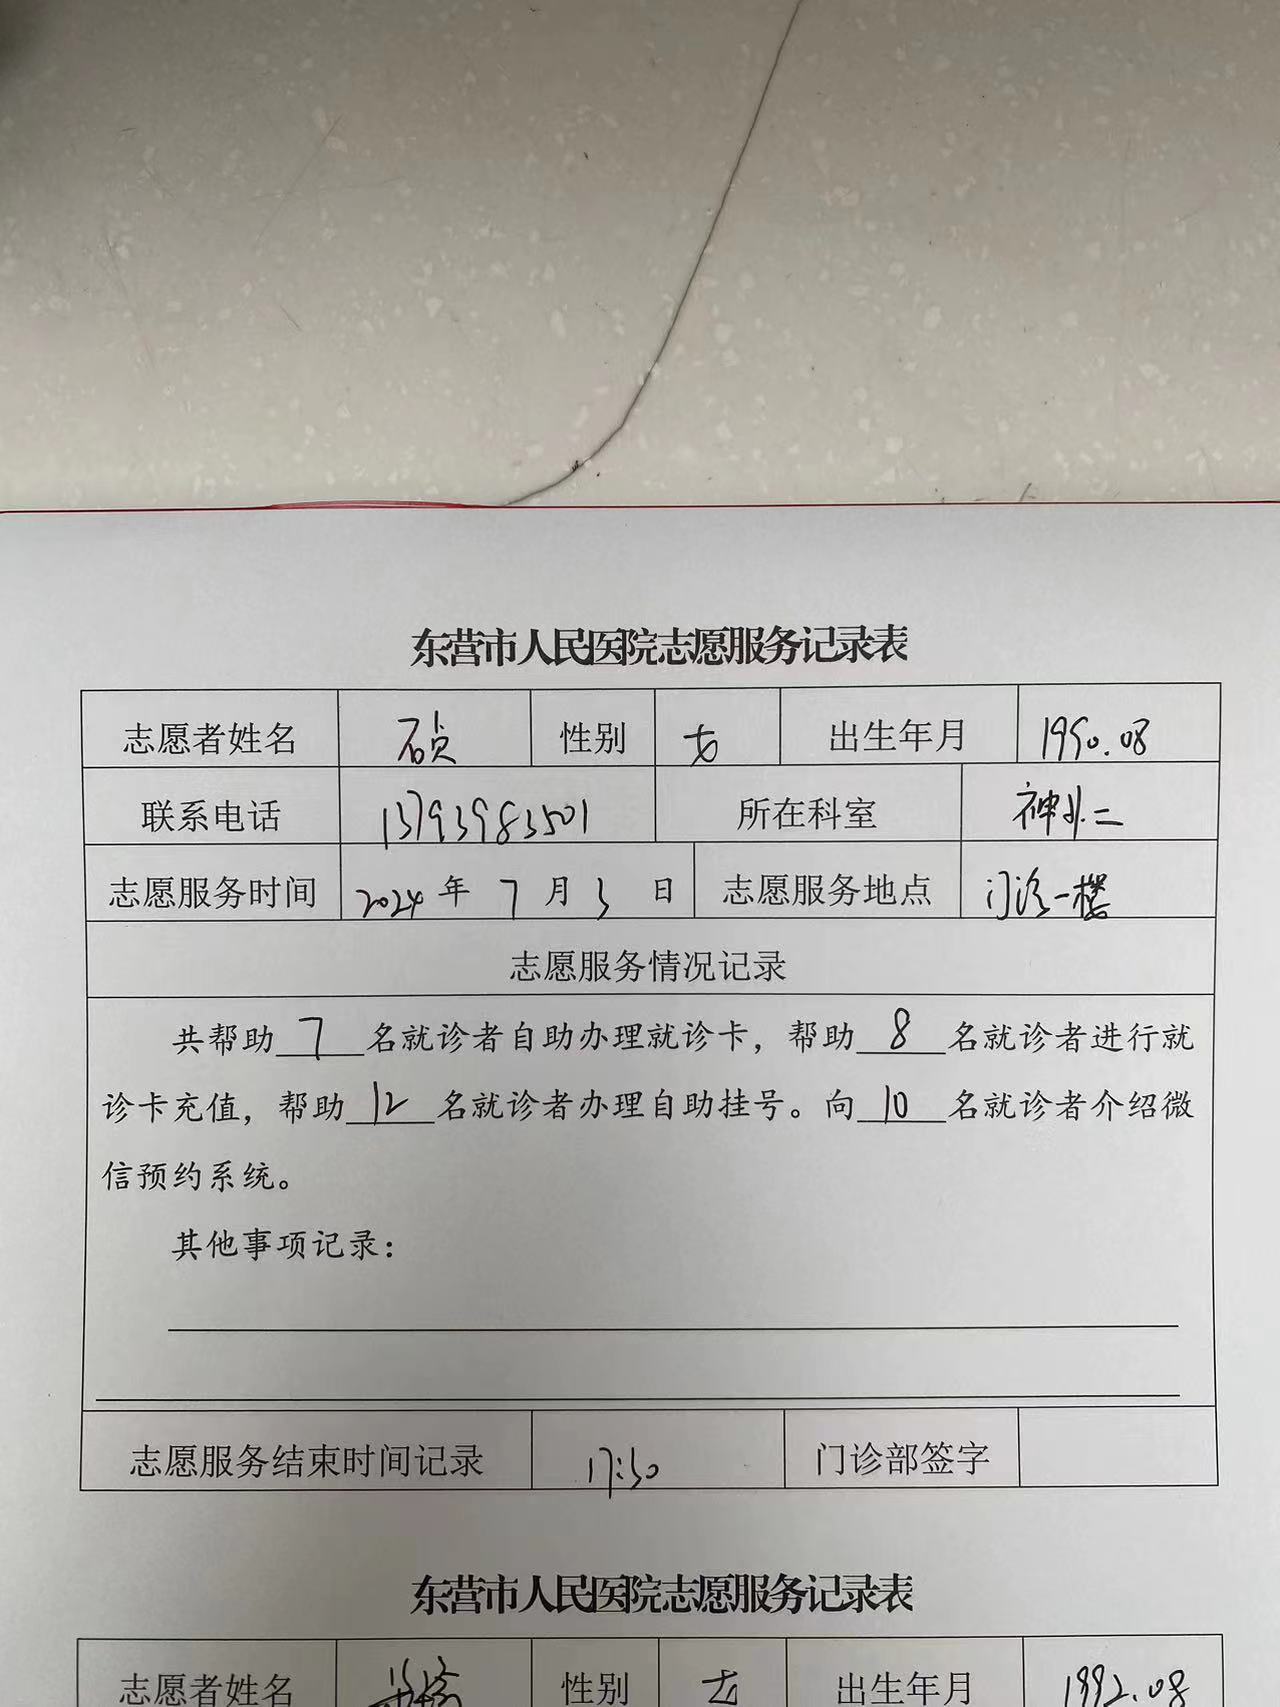 东营市人民医院志愿服务记录表
志愿者姓名 性别 女 出生年月 1990.08
联系电话 13793983501 所在科室 神外二
志愿服务时间 2024年7月3日 志愿服务地点 门诊一楼
志愿服务情况记录
共帮助7名就诊者自助办理就诊卡，帮助8名就诊者进行就
诊卡充值，帮助12名就诊者办理自助挂号。向10名就诊者介绍微
信预约系统。
其他事项记录：
志愿服务结束时间记录 17:30 门诊部签字
东营市人民医院志愿服务记录表
志愿者姓名 性别 女 出生年月 1992.08